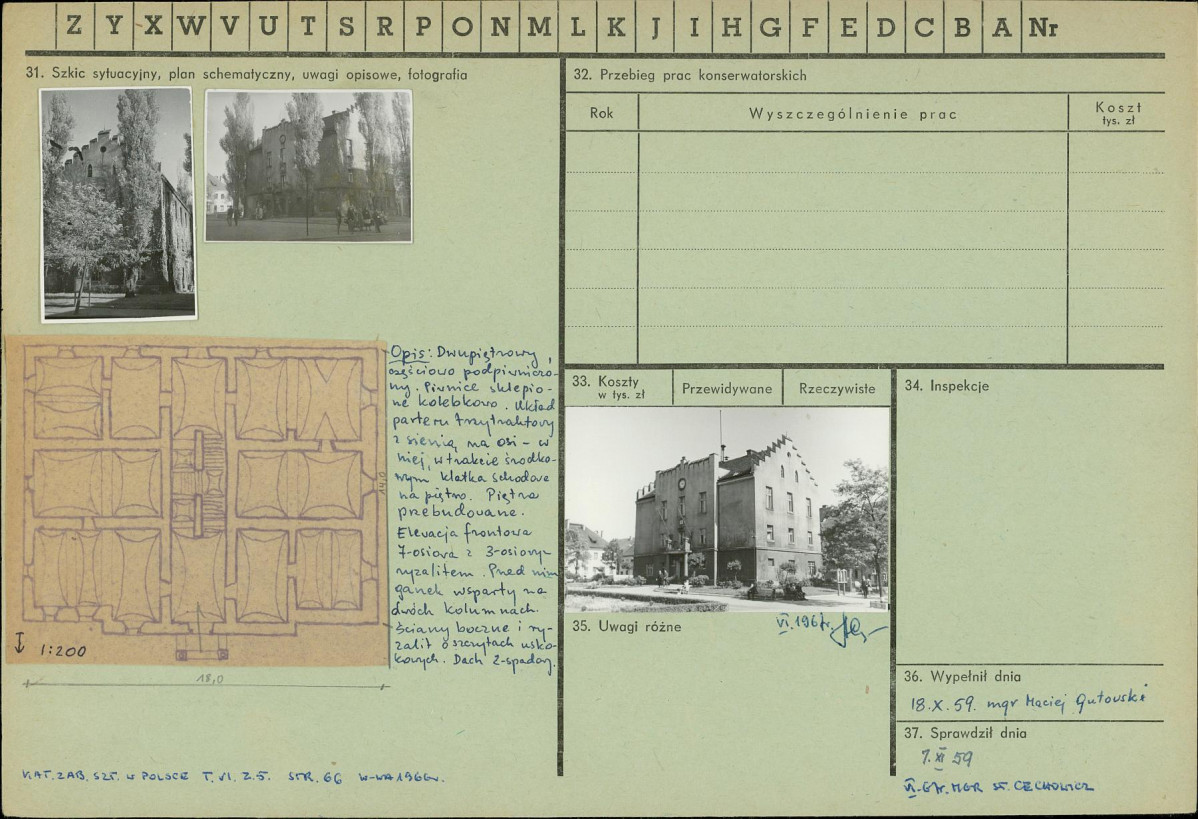 Z Y X W V U T S R P O N M L K J I H G F E D C B A Nr
31. Szkic sytuacyjny, plan schematyczny, uwagi opisowe, fotografia
Opis: Dwupiętrowy,
częściowo podpiwniczo-
ny. Piwnice sklepio-
ne kolebkowo. Układ
parteru trzytraktowy
z sienią na osi – w
niej, w trakcie środko-
wym klatka schodowa
na piętro. Piętra
przebudowane.
Elewacja frontowa
7-osiowa z 3-osiowym
ryzalitem. Przed nim
ganek wsparty na
dwóch kolumnach.
Ściany boczne i ry-
zalit o szczytach usko-
kowych. Dach 2-spadowy.
14,0
1:200
18,0
KAT. ZAB. SZT. W POLSCE T. VI. Z. 5. STR. 66 W-WA 1966 r.
32. Przebieg prac konserwatorskich
Rok
Wyszczególnienie prac
Koszt
tys. zł
33. Koszty
w tys. zł
Przewidywane
Rzeczywiste
VI. 1967r.
35. Uwagi różne
34. Inspekcje
36. Wypełnił dnia
18. X. 59. mgr Maciej Gutowski
37. Sprawdził dnia
7. XI 59
VI-67r. MGR ST. CECHOWICZ